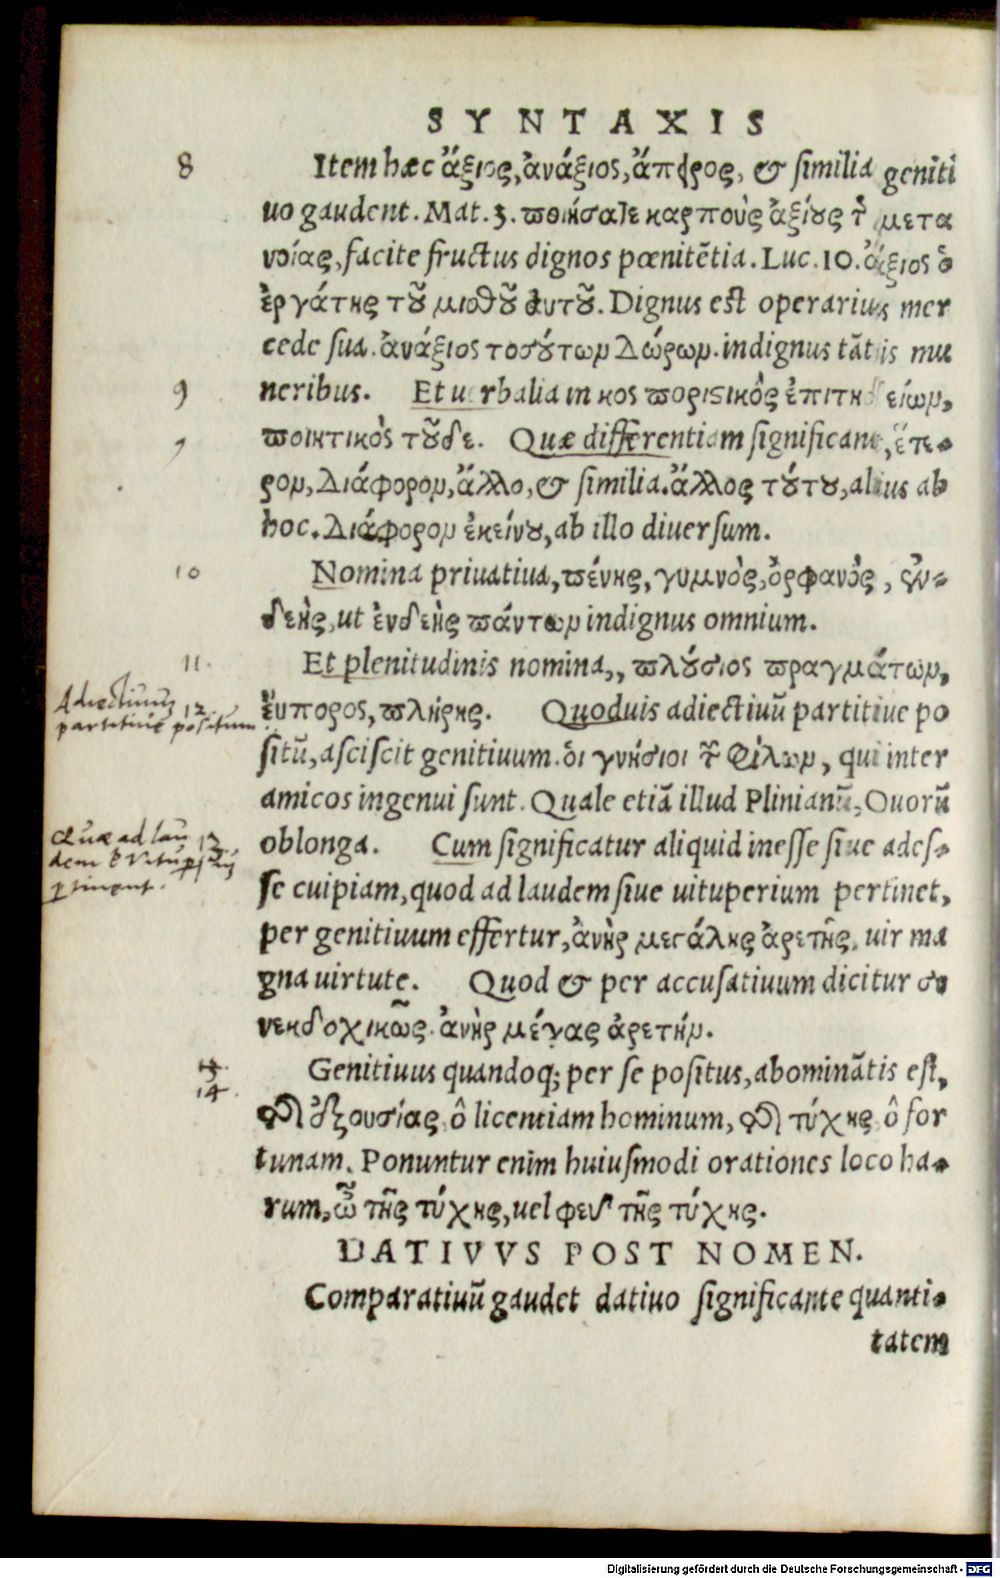 SYNTAXIS
8 Item hæc ἄξιος, ἀνάξιος, ἄπειρος, & similia geniti
uo gaudent. Mat. 3. ποιήσατε καρποὺς ἀξίους τ̃ μετα
νοίας, facite fructus dignos pœnitẽtia. Luc. 10. ἄξιος ὁ
ἐργάτης τοῦ μισθοῦ αὐτοῦ. Dignus est operarius mer
cede sua. ἀνάξιος τοσούτων δώρων. indignus tãtis mu
9 neribus. Et uerbalia in κος ποριστικὸς ἐπιτηδείων,
9 ποιητικὸς τοῦδε. Quæ differentiam significant, ἕτε-
ρον, διάφορον, ἄλλο, & similia. ἄλλος τούτου, alius ab
hoc. διάφορον ἐκείνου, ab illo diuersum.
10 Nomina priuatiua, πένης, γυμνὸς, ὀρφανὸς, ἐν-
δεὴς, ut ἐνδεὴς πάντων indignus omnium.
11. Et plenitudinis nomina,, πλούσιος πραγμάτων,
Adiectiuum 12.
partitiue positum
ἔυπορος, πλήρης. Quoduis adiectiuũ partitiue po
sitũ, asciscit genitiuum. ὁι γνήσιοι τ̃ Φίλων, qui inter
amicos ingenui sunt. Quale etiã illud Plinianũ, Ouorũ
Quæ ad lau 13.
dem & vitup
ptinent.
oblonga. Cum significatur aliquid inesse siue ades-
se cuipiam, quod ad laudem siue uituperium pertinet,
per genitiuum effertur, ἀνὴρ μεγάλης ἀρετῆς, uir ma
gna uirtute. Quod & per accusatiuum dicitur συ
νεκδοχικῶς. ἀνὴρ μέγας ἀρετήν.
Genitiuus quandoq; per se positus, abominãtis est,
14. ἐξουσίας ô licentiam hominum, τύχης ô for
tunam. Ponuntur enim huiusmodi orationes loco ha-
rum, ὦ τῆς τύχης, uel φεῦ τῆς τύχης.
DATIVVS POST NOMEN.
Comparatiuũ gaudet datiuo significante quanti-
tatem
Digitalisierung gefördert durch die Deutsche Forschungsgemeinschaft - DFG